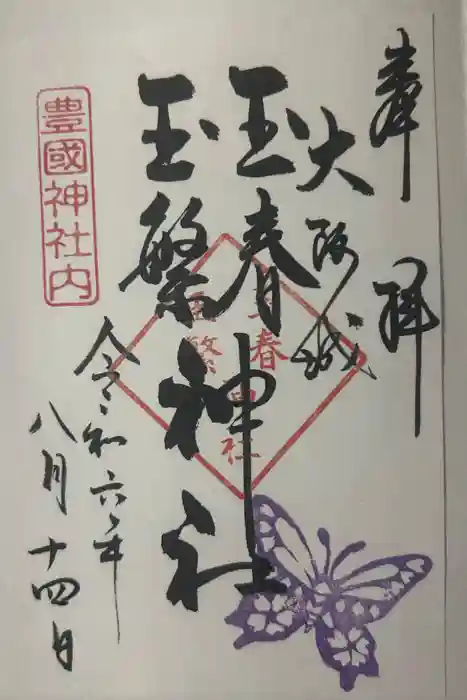 奉拝
大阪城
玉春
玉繁
神社
玉春
玉繁
神社
豊國神社内
令和六年
八月十四日